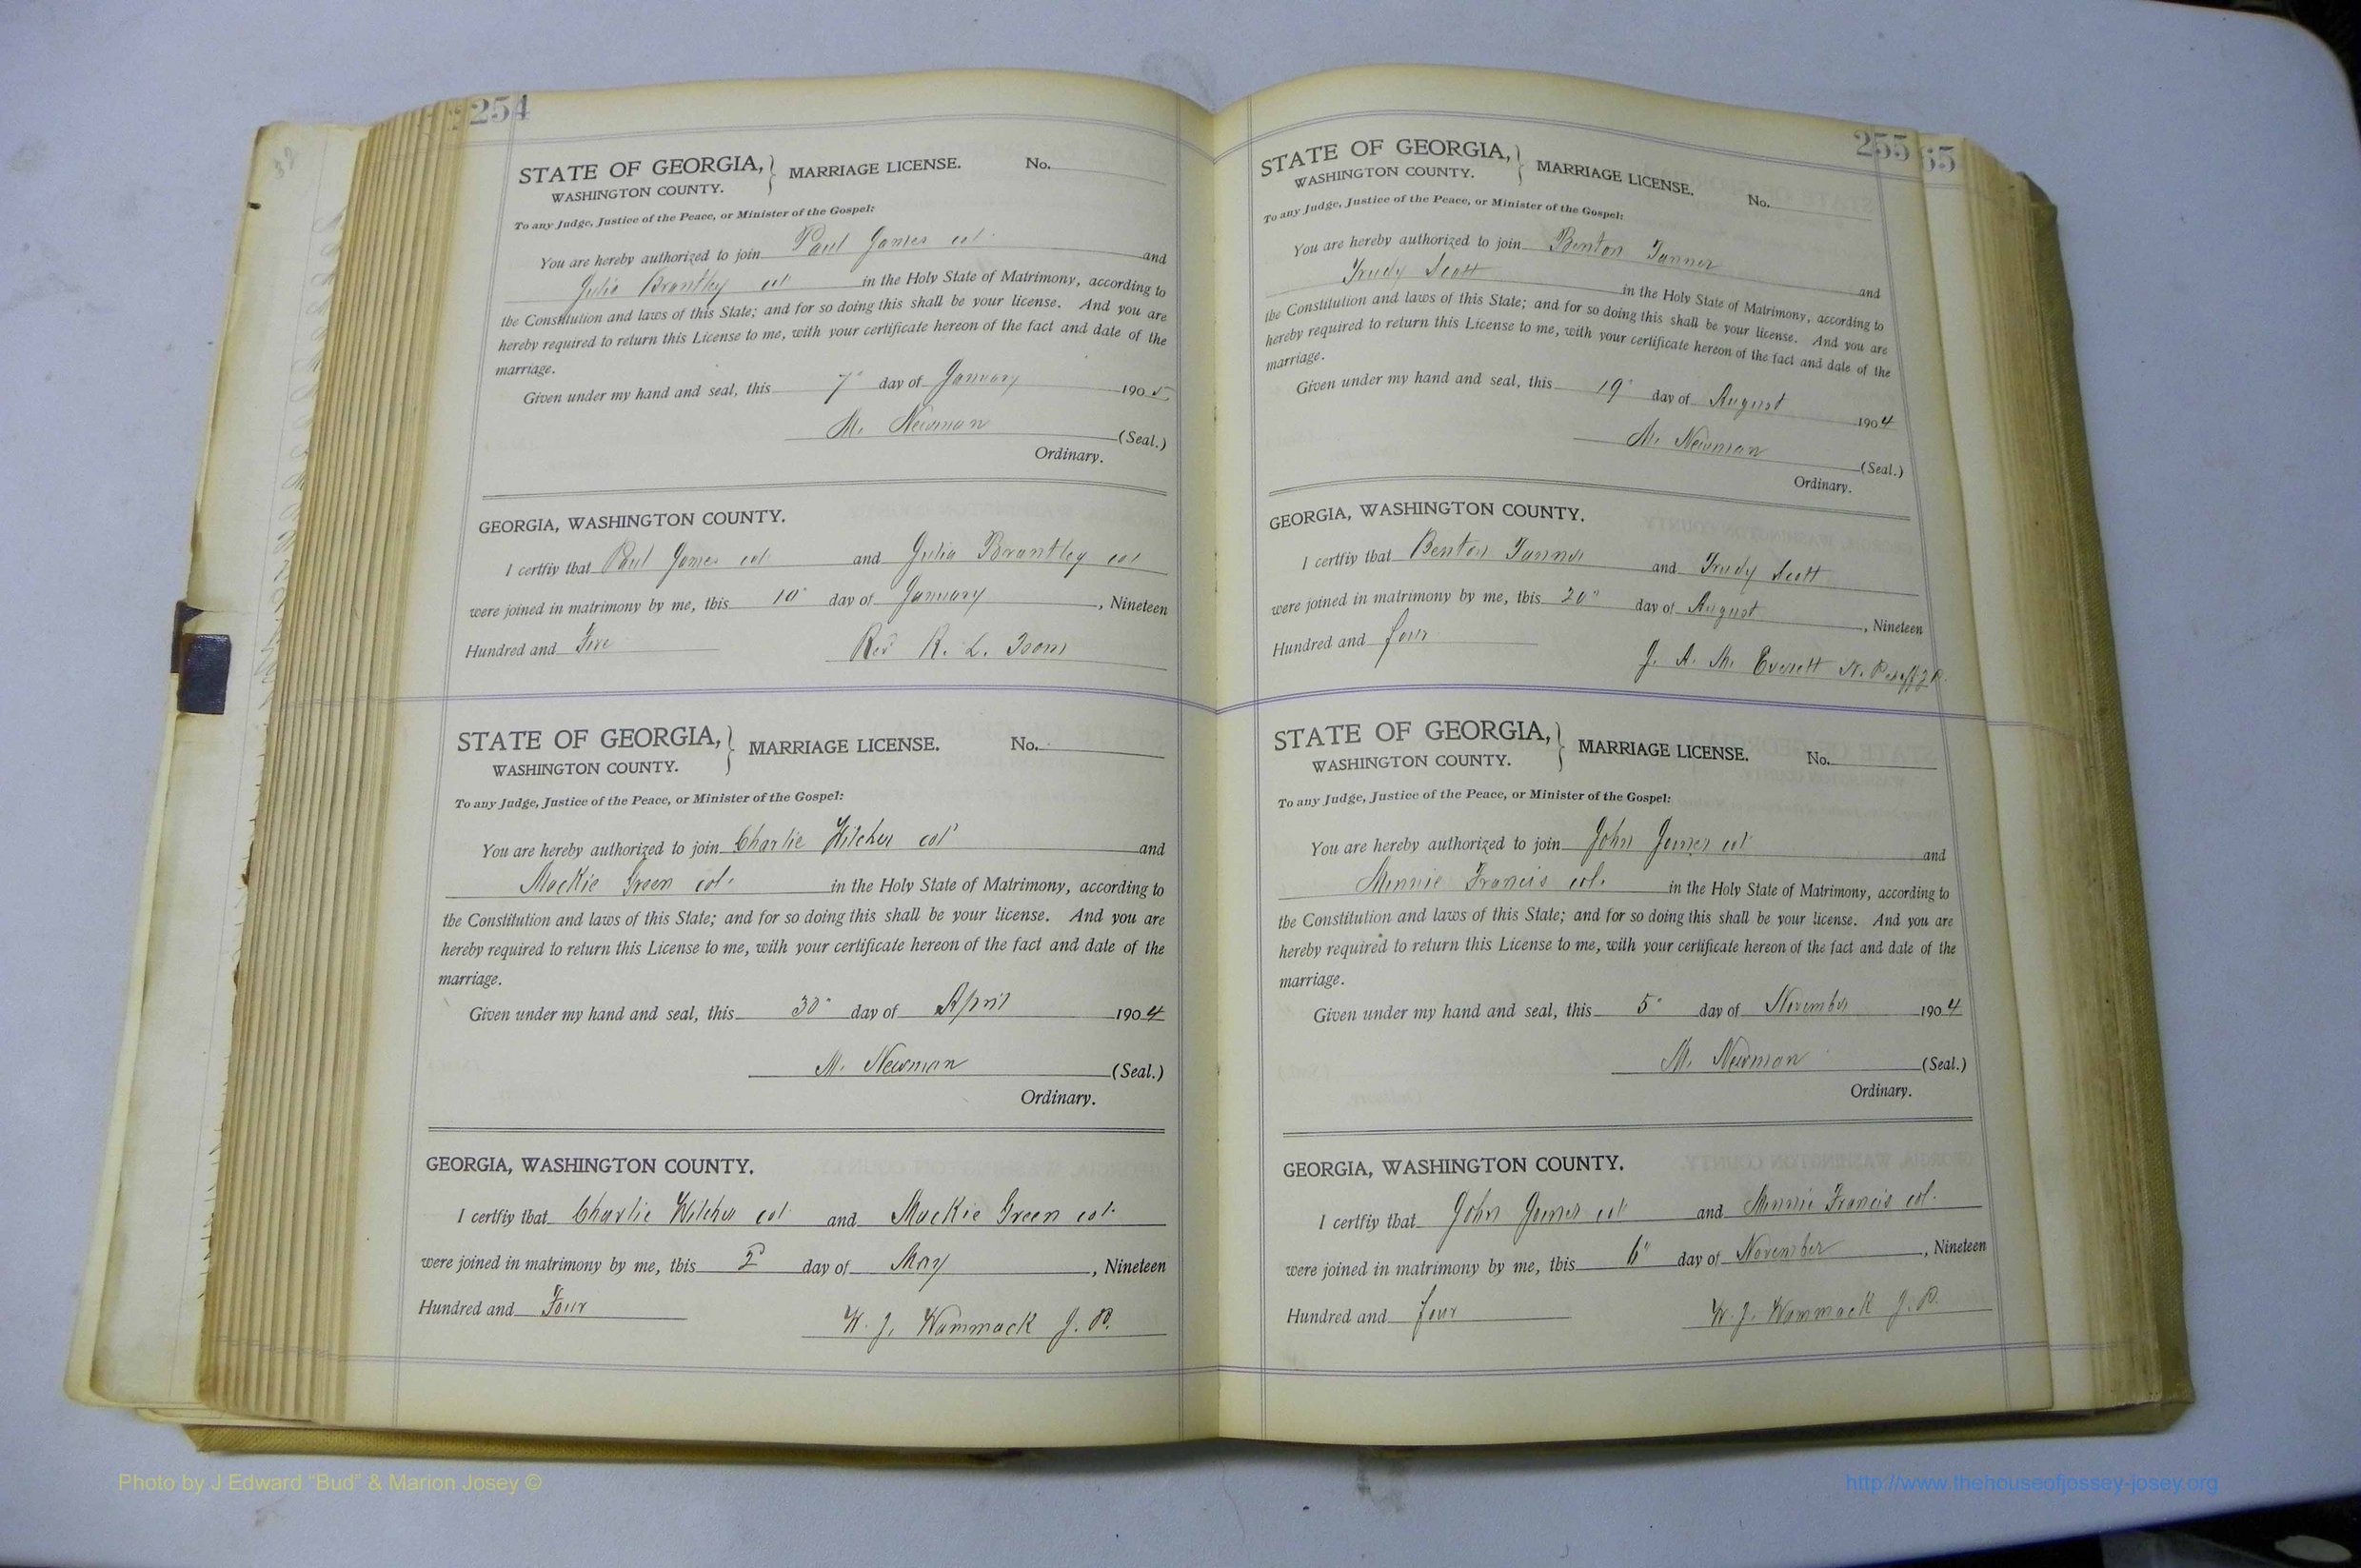 254
STATE OF GEORGIA, } MARRIAGE LICENSE. No.
WASHINGTON COUNTY.
To any Judge, Justice of the Peace, or Minister of the Gospel:
You are hereby authorized to join Paul James col. and
Julia Brantley col in the Holy State of Matrimony, according to
the Constitution and laws of this State; and for so doing this shall be your license. And you are
hereby required to return this License to me, with your certificate hereon of the fact and date of the
marriage.
Given under my hand and seal, this 7" day of January 1905
M. Newman (Seal.)
Ordinary.
GEORGIA, WASHINGTON COUNTY.
I certfiy that Paul James col and Julia Brantley col
were joined in matrimony by me, this 10" day of January, Nineteen
Hundred and Five Rev R. L.
STATE OF GEORGIA, } MARRIAGE LICENSE. No.
WASHINGTON COUNTY.
To any Judge, Justice of the Peace, or Minister of the Gospel:
You are hereby authorized to join Charlie Hilcher col and
Mackie Green col. in the Holy State of Matrimony, according to
the Constitution and laws of this State; and for so doing this shall be your license. And you are
hereby required to return this License to me, with your certificate hereon of the fact and date of the
marriage.
Given under my hand and seal, this 30" day of April 1904
M. Newman (Seal.)
Ordinary.
GEORGIA, WASHINGTON COUNTY.
I certfiy that Charlie Wilcher col and Mackie Green col.
were joined in matrimony by me, this 2" day of May, Nineteen
Hundred and Four
W. J. Wammack J. P.
255
55
STATE OF GEORGIA, } MARRIAGE LICENSE. No.
WASHINGTON COUNTY.
To any Judge, Justice of the Peace, or Minister of the Gospel:
You are hereby authorized to join Benton Tanner and
Trudy Scott in the Holy State of Matrimony, according to
the Constitution and laws of this State; and for so doing this shall be your license. And you are
hereby required to return this License to me, with your certificate hereon of the fact and date of the
marriage.
Given under my hand and seal, this 19" day of August 1904
M. Newman (Seal.)
Ordinary.
GEORGIA, WASHINGTON COUNTY.
I certfiy that Benton Tanner and Trudy Scott
were joined in matrimony by me, this 20" day of August, Nineteen
Hundred and four
J. A. M. Everett N. P.
STATE OF GEORGIA, } MARRIAGE LICENSE. No.
WASHINGTON COUNTY.
To any Judge, Justice of the Peace, or Minister of the Gospel:
You are hereby authorized to join John Joiner col and
Minnie Francis col. in the Holy State of Matrimony, according to
the Constitution and laws of this State; and for so doing this shall be your license. And you are
hereby required to return this License to me, with your certificate hereon of the fact and date of the
marriage.
Given under my hand and seal, this 5" day of November 1904
M. Newman (Seal.)
Ordinary.
GEORGIA, WASHINGTON COUNTY.
I certfiy that John Joiner col and Minnie Francis col.
were joined in matrimony by me, this 6" day of November, Nineteen
Hundred and four
W. J. Wammack J. P.
Photo by J Edward "Bud" & Marion Josey ©
http://www.thehouseofjossey-josey.org